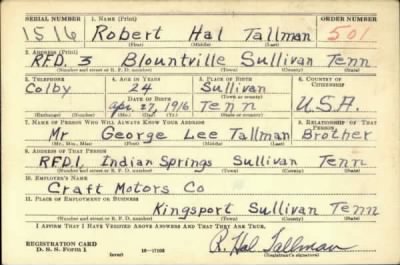 SERIAL NUMBER 1. NAME (Print) ORDER NUMBER
1516 Robert Hal Tallman 501
(First) (Middle) (Last)
2. ADDRESS (Print)
RFD. 3 Blountville Sullivan Tenn
(Number and street or R. F. D. number) (Town) (County) (State)
3. TELEPHONE 4. AGE IN YEARS 5. PLACE OF BIRTH 6. COUNTRY OF CITIZENSHIP
Colby 24 Sullivan
(Town or county)
DATE OF BIRTH
Apr. 27, 1916 Tenn U.S.A.
(Exchange) (Number) (Mo.) (Day) (Yr.) (State or country)
7. NAME OF PERSON WHO WILL ALWAYS KNOW YOUR ADDRESS 8. RELATIONSHIP OF THAT PERSON
Mr George Lee Tallman Brother
(Mr., Mrs., Miss) (First) (Middle) (Last)
9. ADDRESS OF THAT PERSON
RFD.1, Indian Springs Sullivan Tenn
(Number and street or R. F. D. number) (Town) (County) (State)
10. EMPLOYER'S NAME
Craft Motors Co
11. PLACE OF EMPLOYMENT OR BUSINESS
Kingsport Sullivan Tenn
(Number and street or R. F. D. number) (Town) (County) (State)
I AFFIRM THAT I HAVE VERIFIED ABOVE ANSWERS AND THAT THEY ARE TRUE.
REGISTRATION CARD
D. S. S. Form 1 (over) R. Hal Tallman
(Registrant's signature)